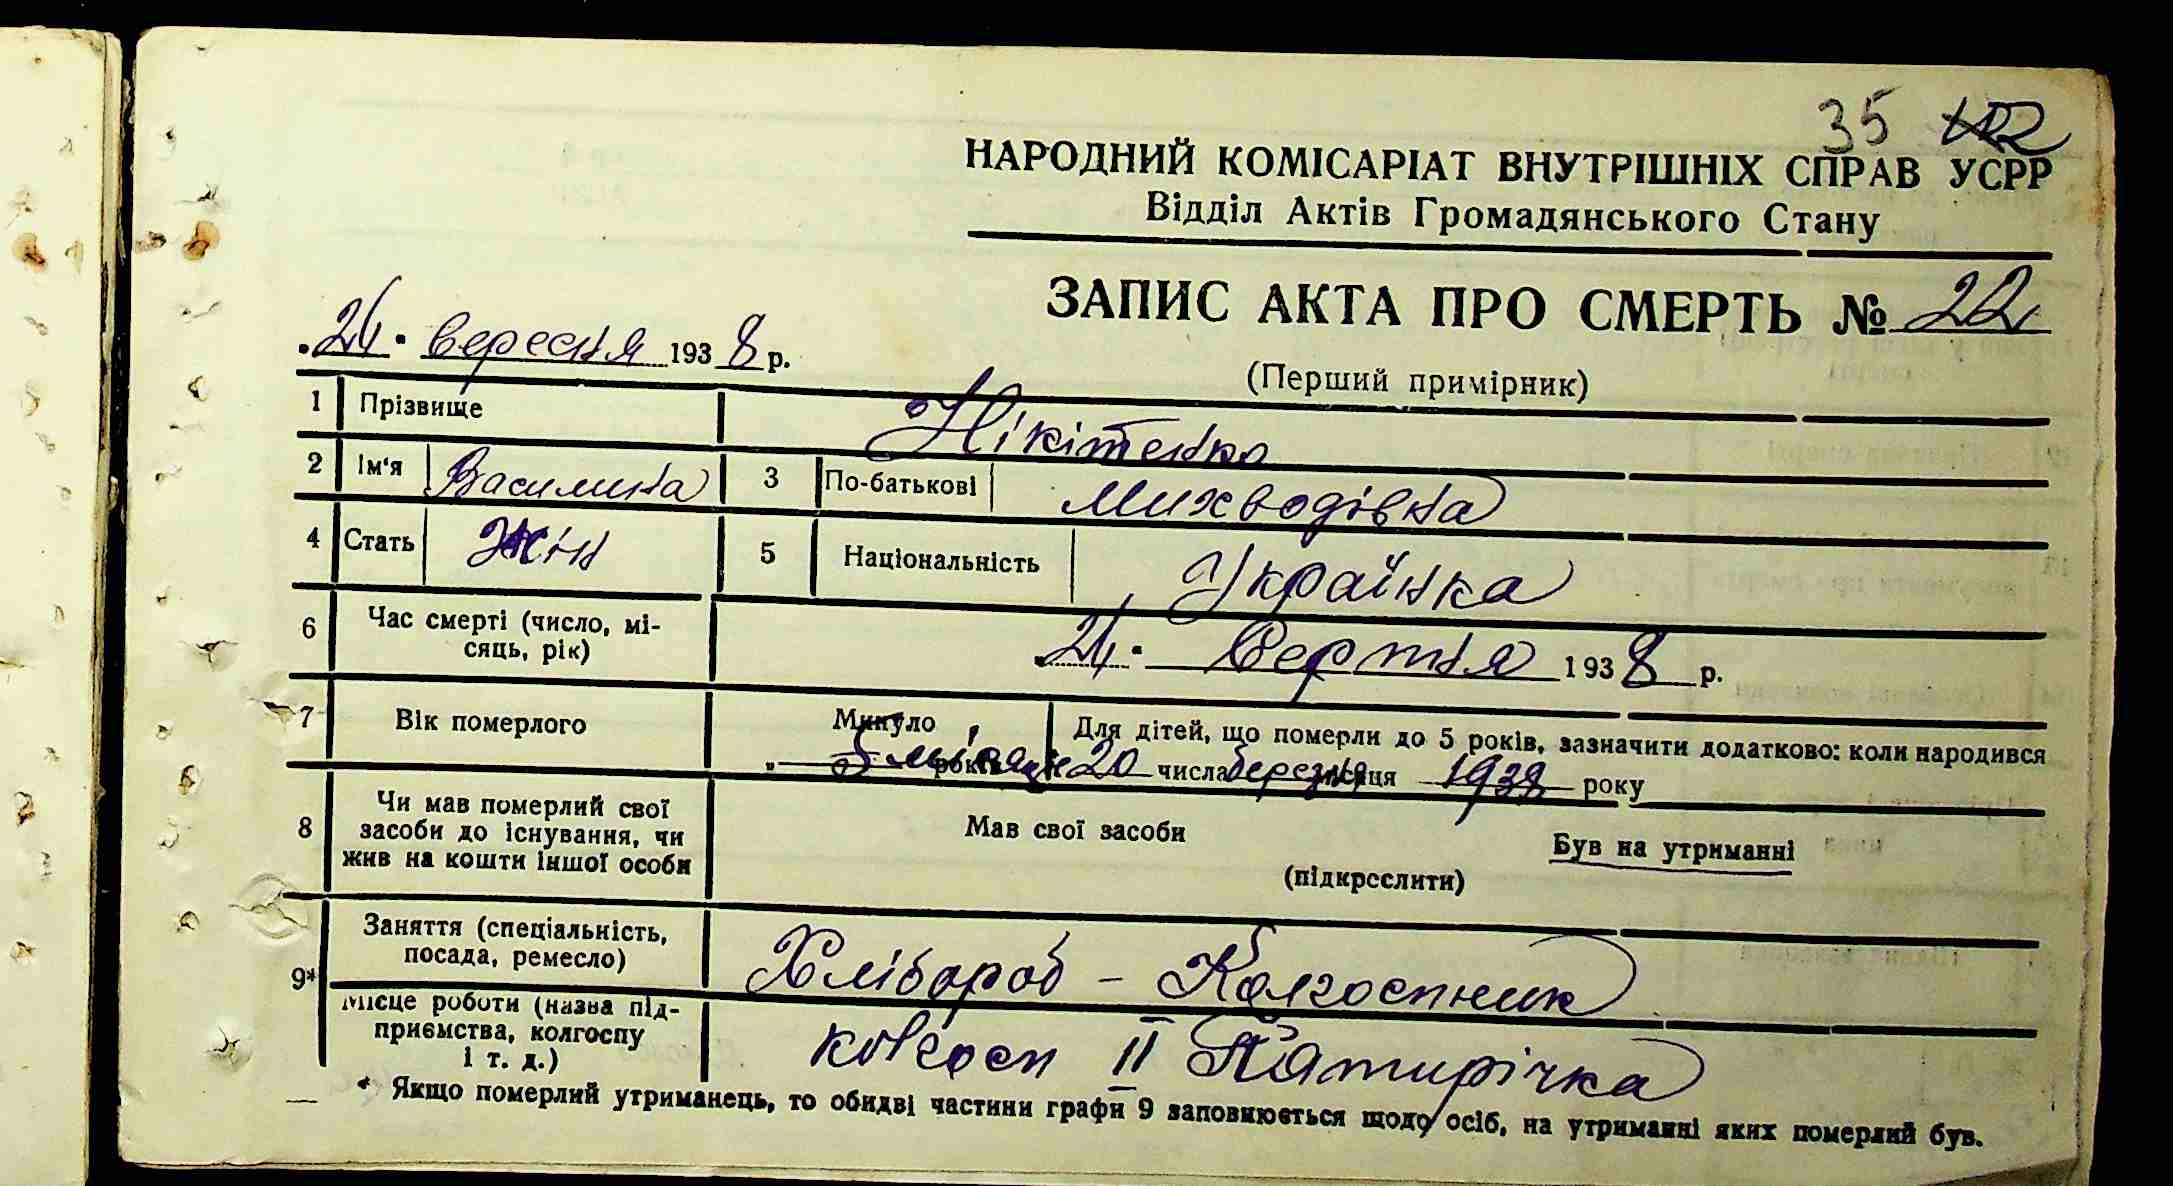 35
НАРОДНИЙ КОМІСАРІАТ ВНУТРІШНІХ СПРАВ УСРР
Відділ Актів Громадянського Стану
ЗАПИС АКТА ПРО СМЕРТЬ № 22
„24" вересня 1938 р.
(Перший примірник)
1 Прізвище Нікітенко
2 Ім'я Василина 3 По-батькові
4 Стать жін 5 Національність Українка
6 Час смерті (число, мі-
сяць, рік) „24" 1938 р.
7 Вік померлого Минуло Для дітей, що померли до 5 років, зазначити додатково: коли народився
„ 5 місяців років 20 числа березня місяця 1938 року
8 Чи мав померлий свої
засоби до існування, чи
жив на кошти іншої особи
Мав свої засоби Був на утриманні
(підкреслити)
9* Заняття (спеціальність,
посада, ремесло) Хлібороб - Колгоспник
Місце роботи (назва під-
приємства, колгоспу
і т. д.) колгосп II П'ятирічка
* Якщо померлий утриманець, то обидві частини графи 9 заповнюється щодо осіб, на утриманні яких померлий був.